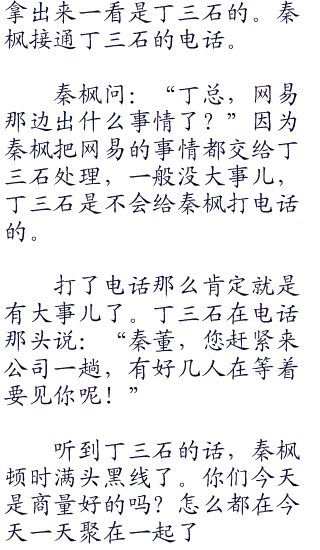 拿出来一看是丁三石的。秦
枫接通丁三石的电话。
秦枫问：“丁总，网易
那边出什么事情了？”因为
秦枫把网易的事情都交给丁
三石处理，一般没大事儿，
丁三石是不会给秦枫打电话
的。
打了电话那么肯定就是
有大事儿了。丁三石在电话
那头说：“秦董，您赶紧来
公司一趟，有好几人在等着
要见你呢！”
听到丁三石的话，秦枫
顿时满头黑线了。你们今天
是商量好的吗？怎么都在今
天一天聚在一起了